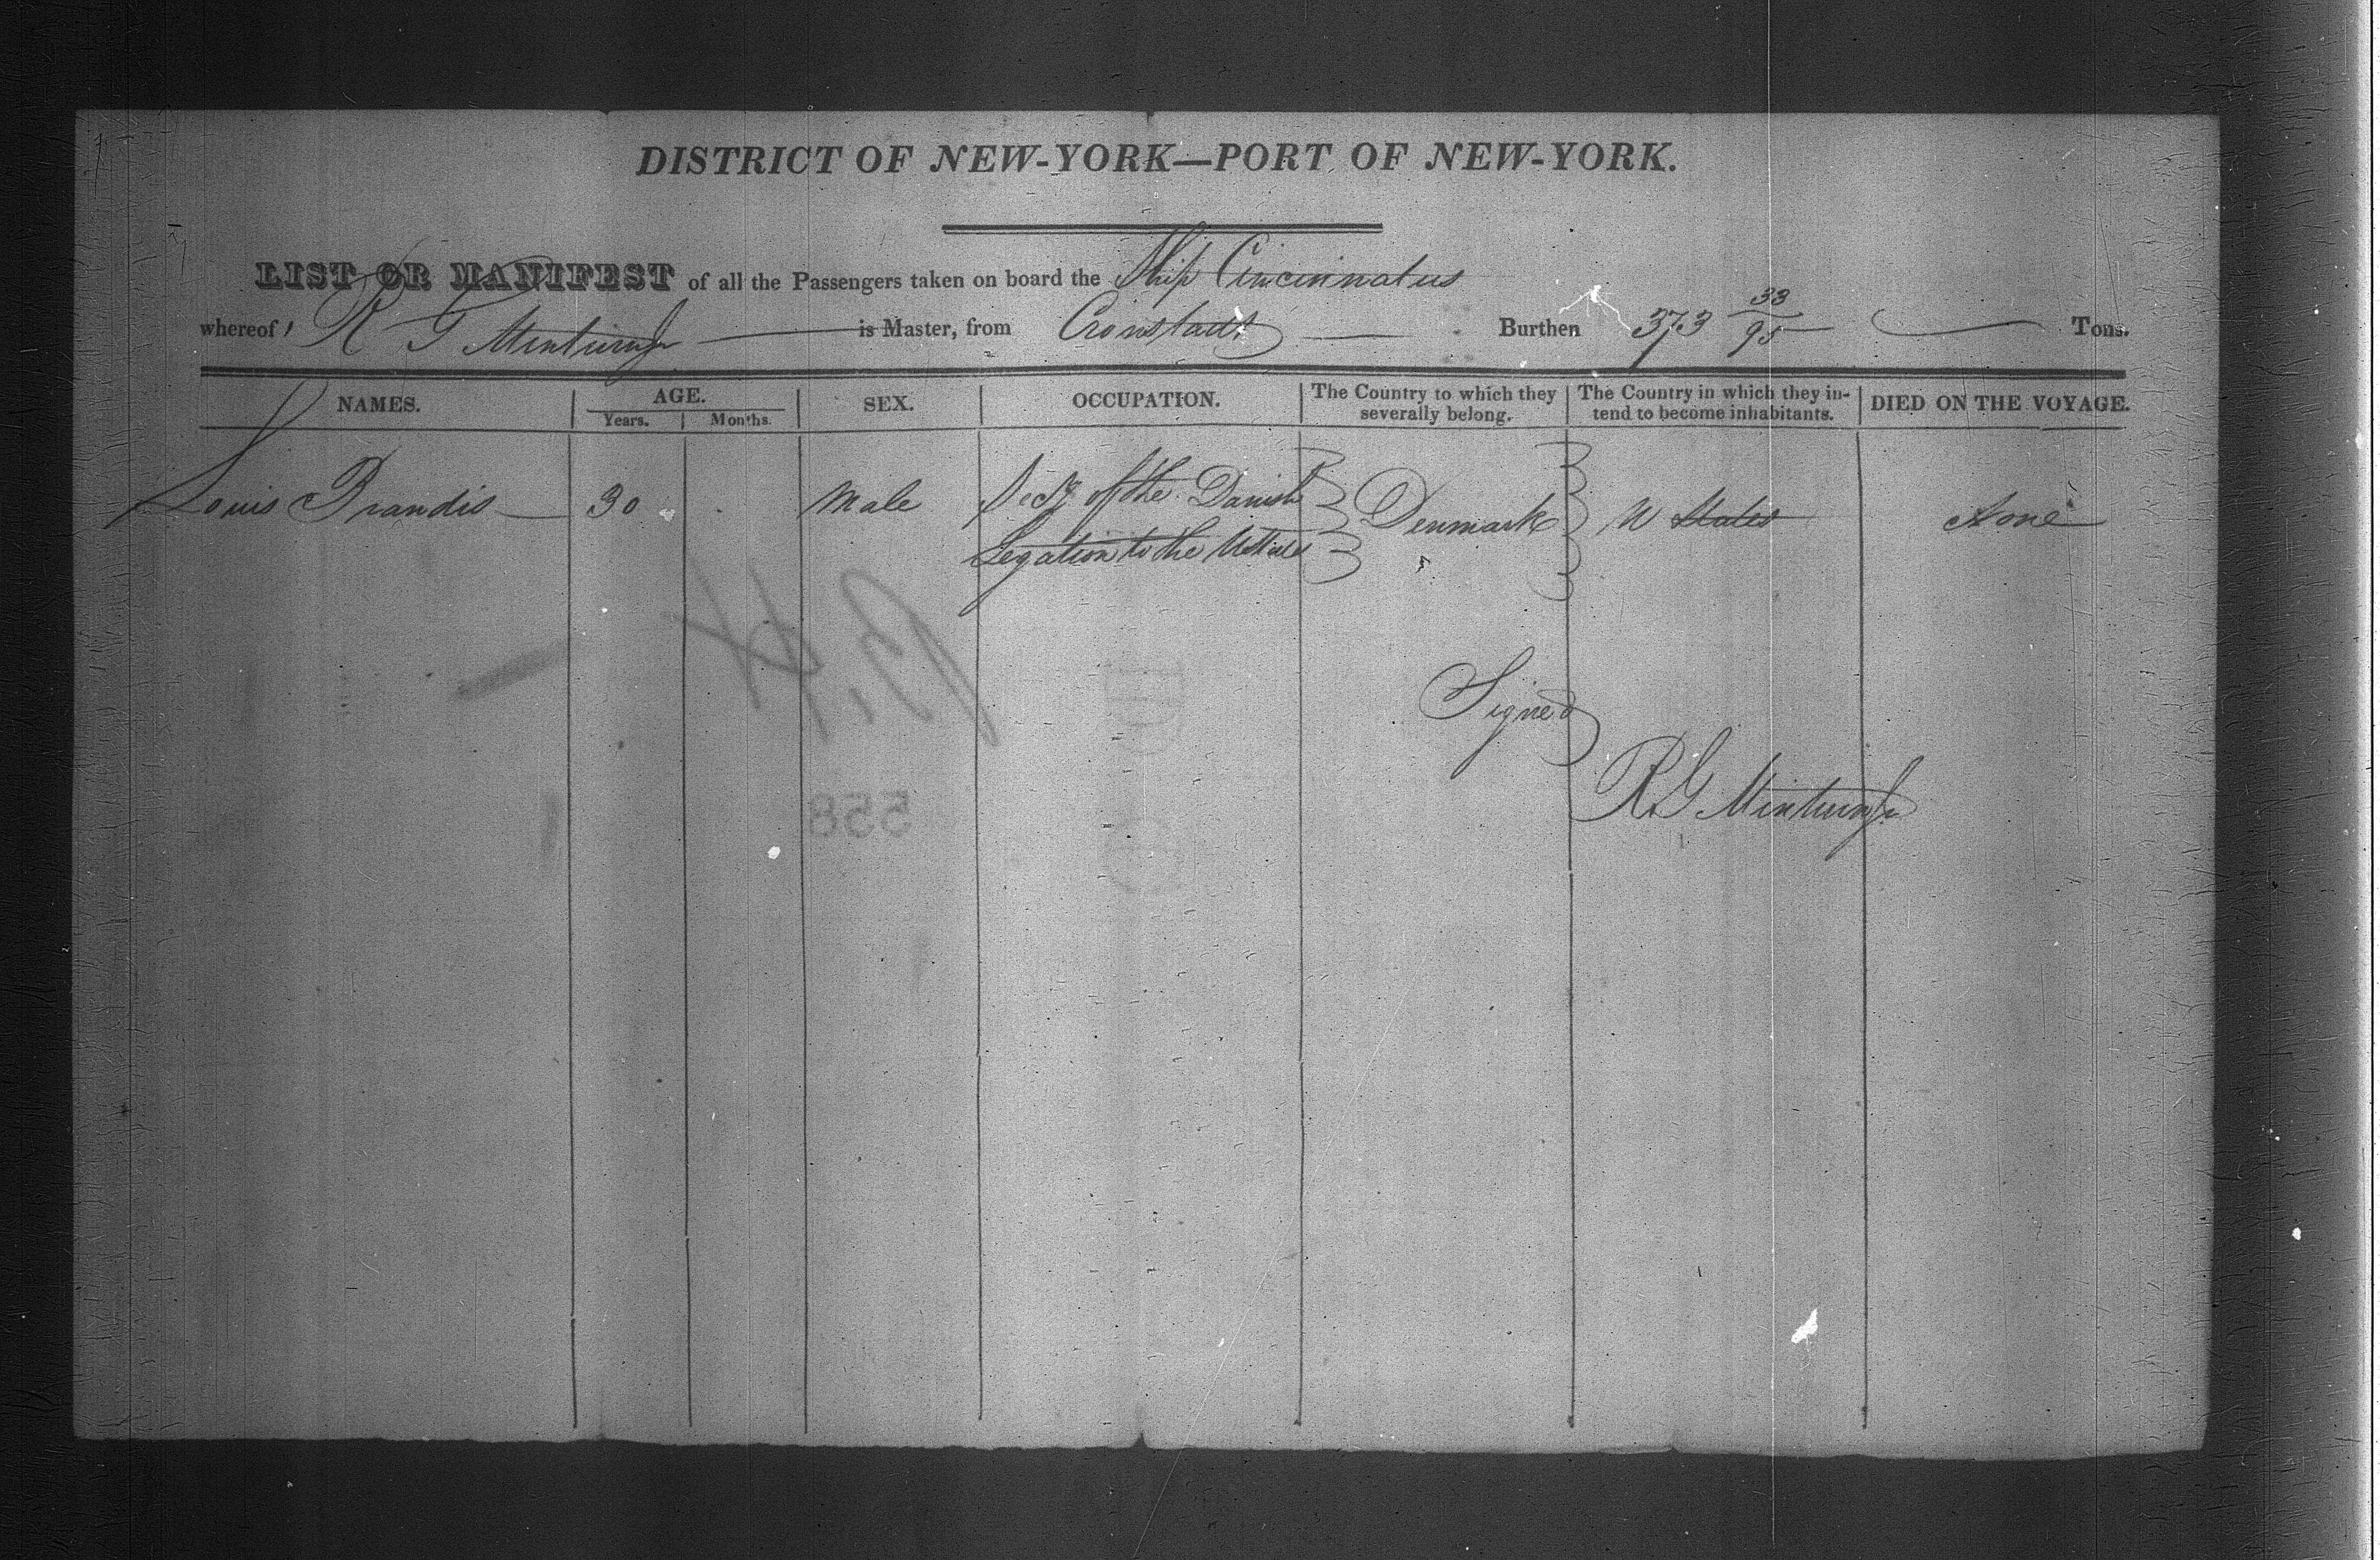 DISTRICT OF NEW-YORK—PORT OF NEW-YORK.
LIST OR MANIFEST of all the Passengers taken on board the Ship Cincinnatus
whereof R G Minturn Jr is Master, from Cronstadt Burthen 373 33/95 Tons.
NAMES. AGE. SEX. OCCUPATION. The Country to which they severally belong. The Country in which they intend to become inhabitants. DIED ON THE VOYAGE.
Years. Months.
Louis Brandis 30 Male Secy of the Danish Denmark U States None
Legation to the UStates
Signed
R G Minturn Jr
558